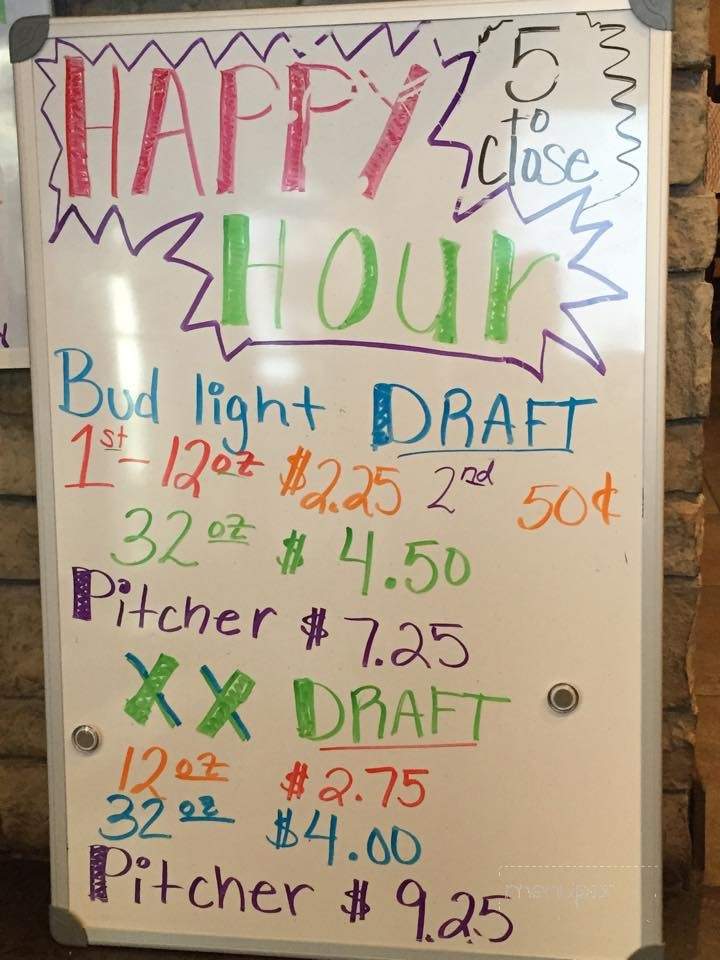 HAPPY
5
to
Close
Hour
Bud light DRAFT
1st-12oz $2.25 2nd 50¢
32oz $4.50
Pitcher $7.25
XX DRAFT
12oz $2.75
32oz $4.00
Pitcher $9.25